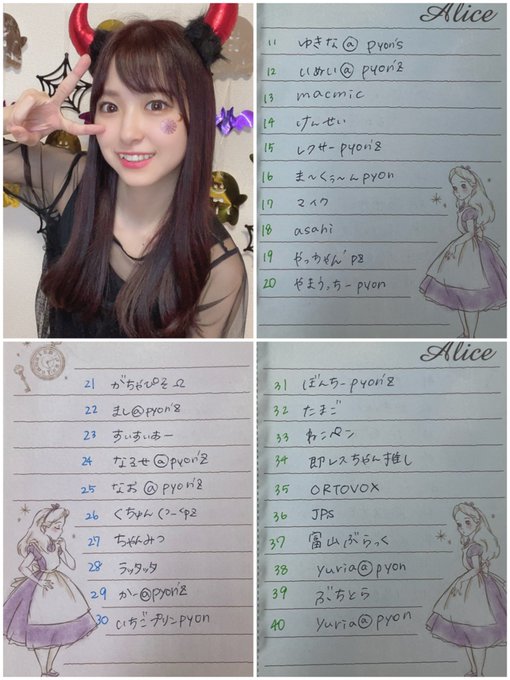 Alice
11 ゆきな@ pyon's
12 いぬい@ pyon'z
13 macmic
14 けんせい
15 レクサーpyon'z
16 ま〜くぅ〜んpyon
17 マイク
18 asahi
19 やっちゃん'pz
20 やまうっちーpyon
21 がちゃぴそΩ
22 まし@pyon'z
23 すいすいおー
24 なるせ@pyon'z
25 なお@pyon'z
26 くちゅん
27 ちゃんみつ
28 ラッタッタ
29 かー@pyon'z
30 いちごプリンpyon
Alice
31 ぼんちーpyon'z
32 たまご
33 ねこペン
34 即レスちゃん推し
35 ORTOVOX
36 JPS
37 富山ぶらっく
38 yuria@pyon
39 ぶちとら
40 yuria@pyon